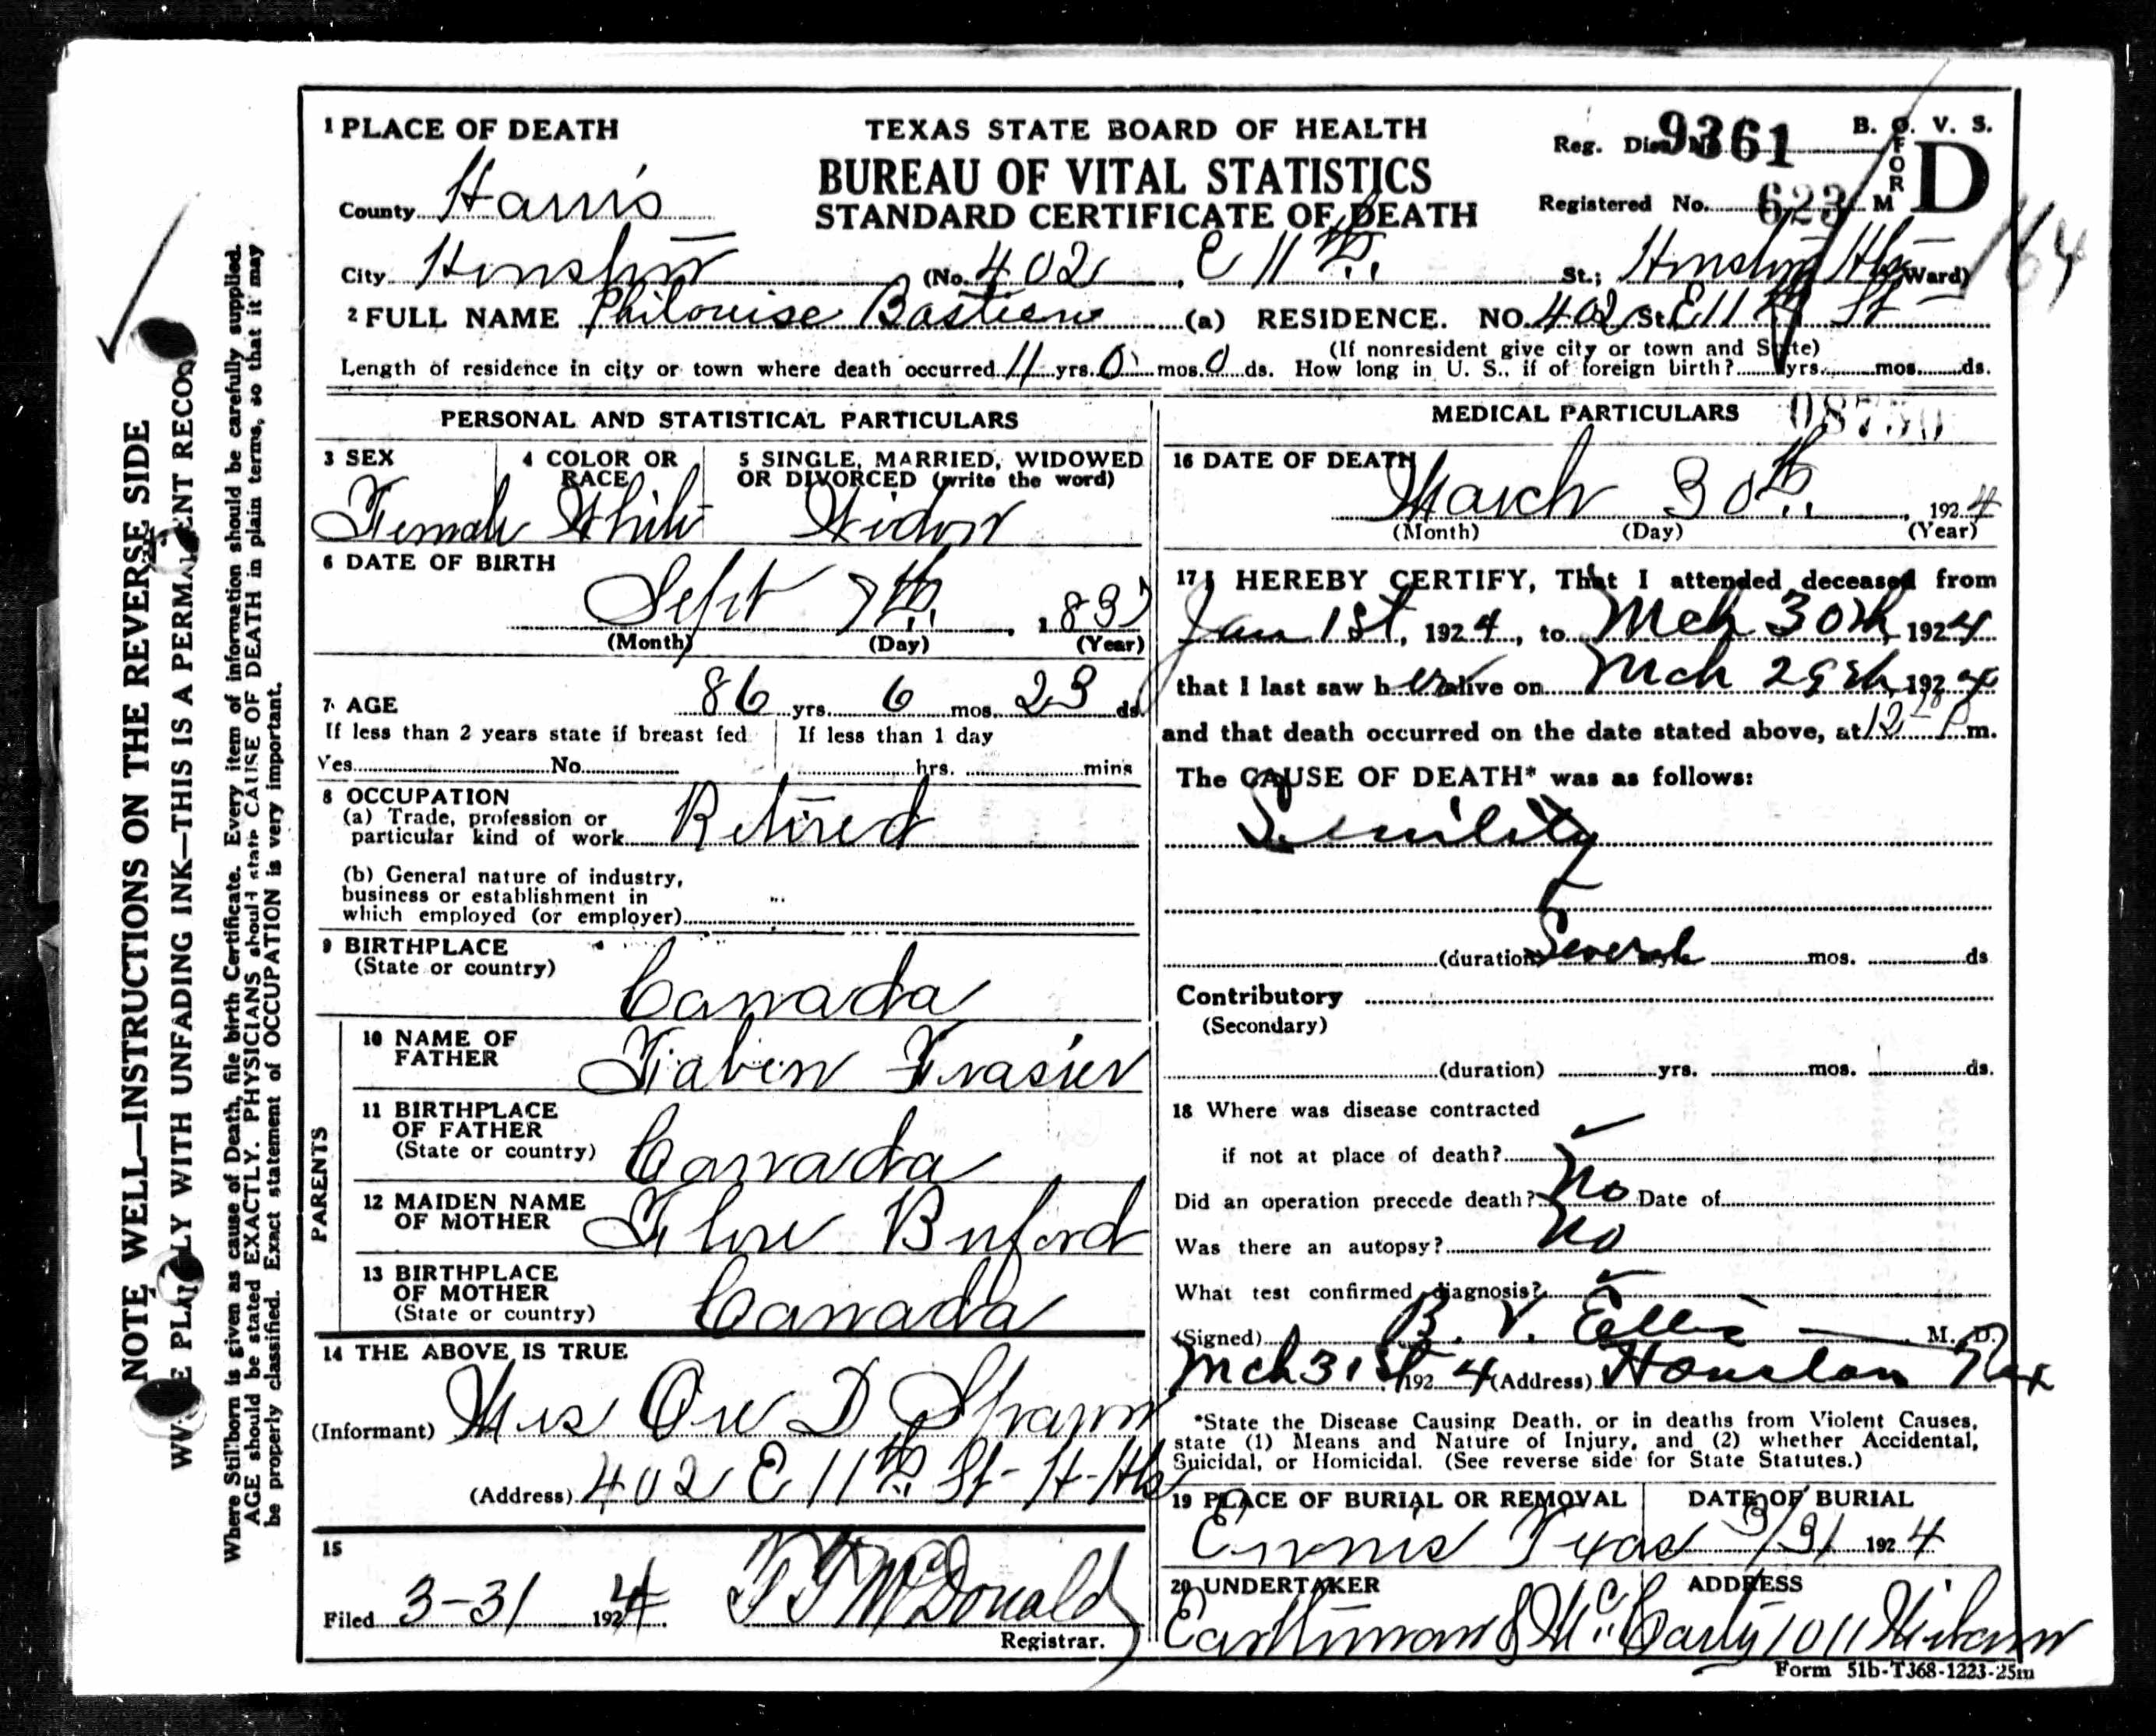 NOTE WELL—INSTRUCTIONS ON THE REVERSE SIDE
PLAINLY WITH UNFADING INK—THIS IS A PERMANENT RECORD
Where Stillborn is given as cause of Death, file birth Certificate. Every item of information should be carefully supplied.
AGE should be stated EXACTLY. PHYSICIANS should state CAUSE OF DEATH in plain terms, so that it may
be properly classified. Exact statement of OCCUPATION is very important.
1 PLACE OF DEATH
TEXAS STATE BOARD OF HEALTH
BUREAU OF VITAL STATISTICS
STANDARD CERTIFICATE OF DEATH
Reg. Dis. No. 9361
B. O. V. S.
FORM D
Registered No. 623
164
County Harris
City Houston (No. 402, E 11th. St.; Houston Hts Ward)
2 FULL NAME Philouise Bastien (a) RESIDENCE. NO. 402 St. E 11th St
(If nonresident give city or town and State)
Length of residence in city or town where death occurred 11 yrs. 0 mos. 0 ds. How long in U. S., if of foreign birth? yrs. mos. ds.
PERSONAL AND STATISTICAL PARTICULARS
3 SEX
4 COLOR OR RACE
5 SINGLE, MARRIED, WIDOWED OR DIVORCED (write the word)
Female White Widow
6 DATE OF BIRTH
Sept 7th. , 1837
(Month) (Day) (Year)
7 AGE 86 yrs. 6 mos. 23 ds.
If less than 2 years state if breast fed If less than 1 day
Yes No hrs. mins
8 OCCUPATION
(a) Trade, profession or
particular kind of work Retired
(b) General nature of industry,
business or establishment in
which employed (or employer)
9 BIRTHPLACE
(State or country) Canada
PARENTS
10 NAME OF FATHER Fabien Frasier
11 BIRTHPLACE OF FATHER
(State or country) Canada
12 MAIDEN NAME OF MOTHER Flore Buford
13 BIRTHPLACE OF MOTHER
(State or country) Canada
14 THE ABOVE IS TRUE
(Informant) Mrs D Spann
(Address) 402 E 11th. St - H - Hts
15
Filed 3-31 1924 McDonald
Registrar.
MEDICAL PARTICULARS 08750
16 DATE OF DEATH
March 30th. , 1924
(Month) (Day) (Year)
17 I HEREBY CERTIFY, That I attended deceased from
Jan 1st, 1924, to Mch 30th, 1924
that I last saw her alive on Mch 29th, 1924
and that death occurred on the date stated above, at 12 P m.
The CAUSE OF DEATH* was as follows:
Senility
(duration) Several mos. ds
Contributory
(Secondary)
(duration) yrs. mos. ds.
18 Where was disease contracted
if not at place of death?
Did an operation precede death? No Date of
Was there an autopsy? No
What test confirmed diagnosis?
(Signed) B. V. Ellis M. D.
Mch 31st, 1924 (Address) Houston Tex
*State the Disease Causing Death, or in deaths from Violent Causes,
state (1) Means and Nature of Injury, and (2) whether Accidental,
Suicidal, or Homicidal. (See reverse side for State Statutes.)
19 PLACE OF BURIAL OR REMOVAL DATE OF BURIAL
Ennis Texas 3/31 1924
20 UNDERTAKER ADDRESS
Earthman & McCarty 1011
Form 51b-T368-1223-25m